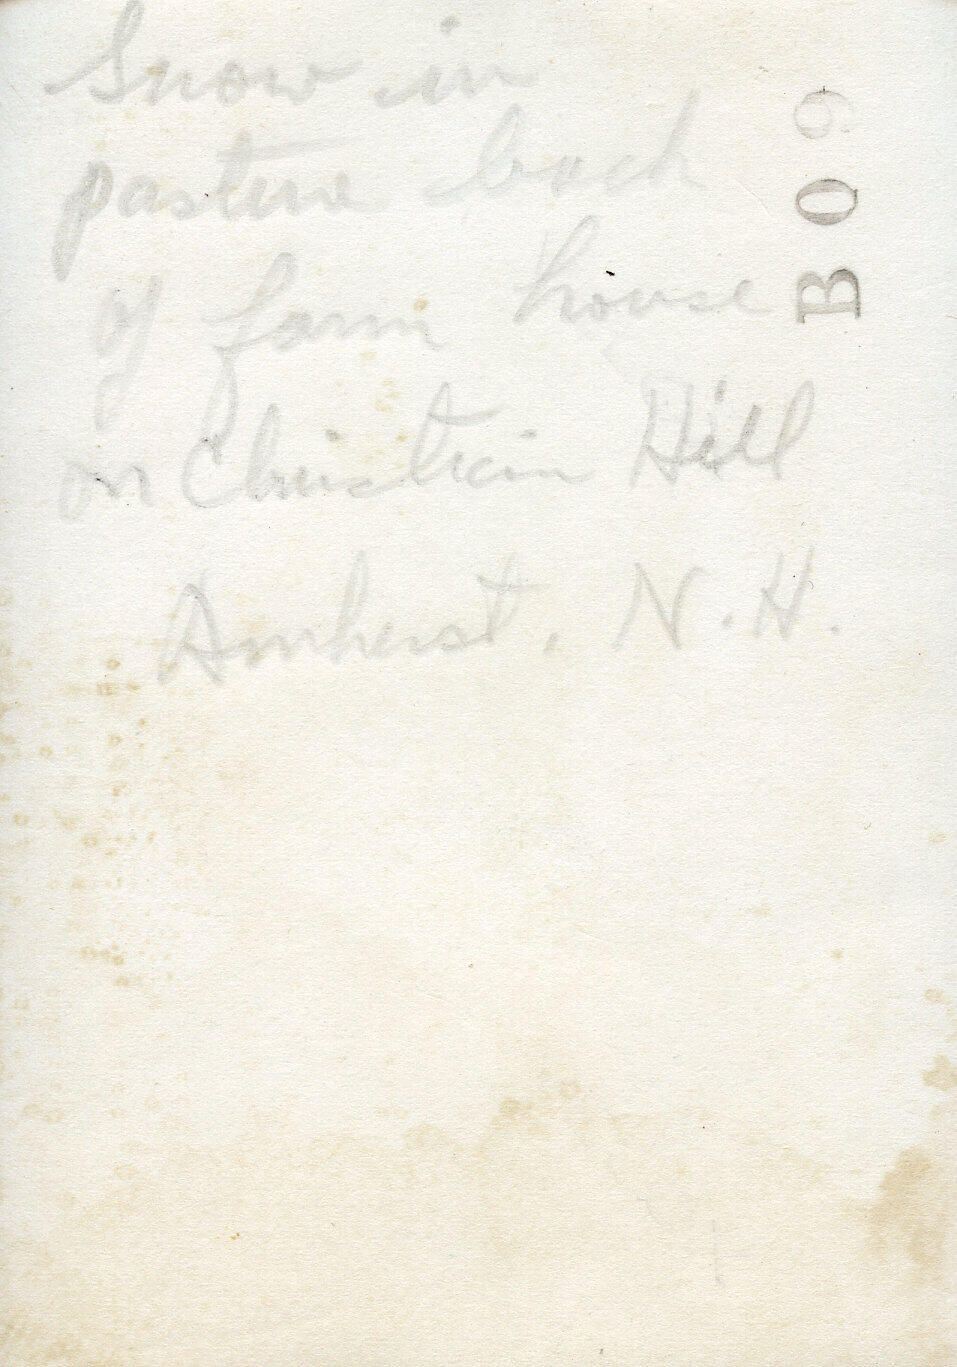 Snow in
pasture back
of farm house
on Christian Hill
Amherst, N.H.
B09